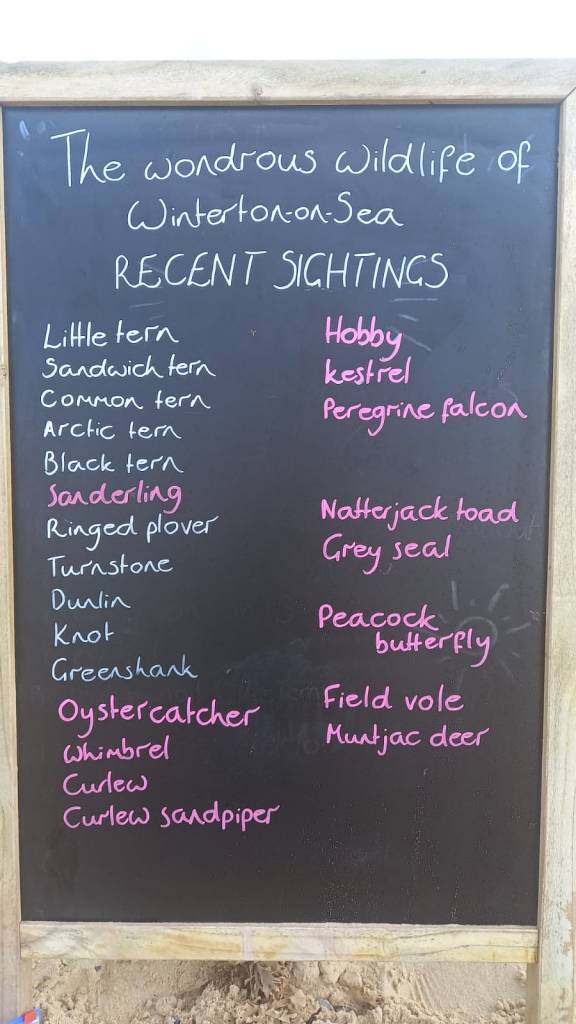 The wondrous wildlife of
Winterton-on-Sea
RECENT SIGHTINGS
Little tern
Sandwich tern
Common tern
Arctic tern
Black tern
Sanderling
Ringed plover
Turnstone
Dunlin
Knot
Greenshank
Oystercatcher
Whimbrel
Curlew
Curlew sandpiper
Hobby
kestrel
Peregrine falcon
Natterjack toad
Grey seal
Peacock
butterfly
Field vole
Muntjac deer